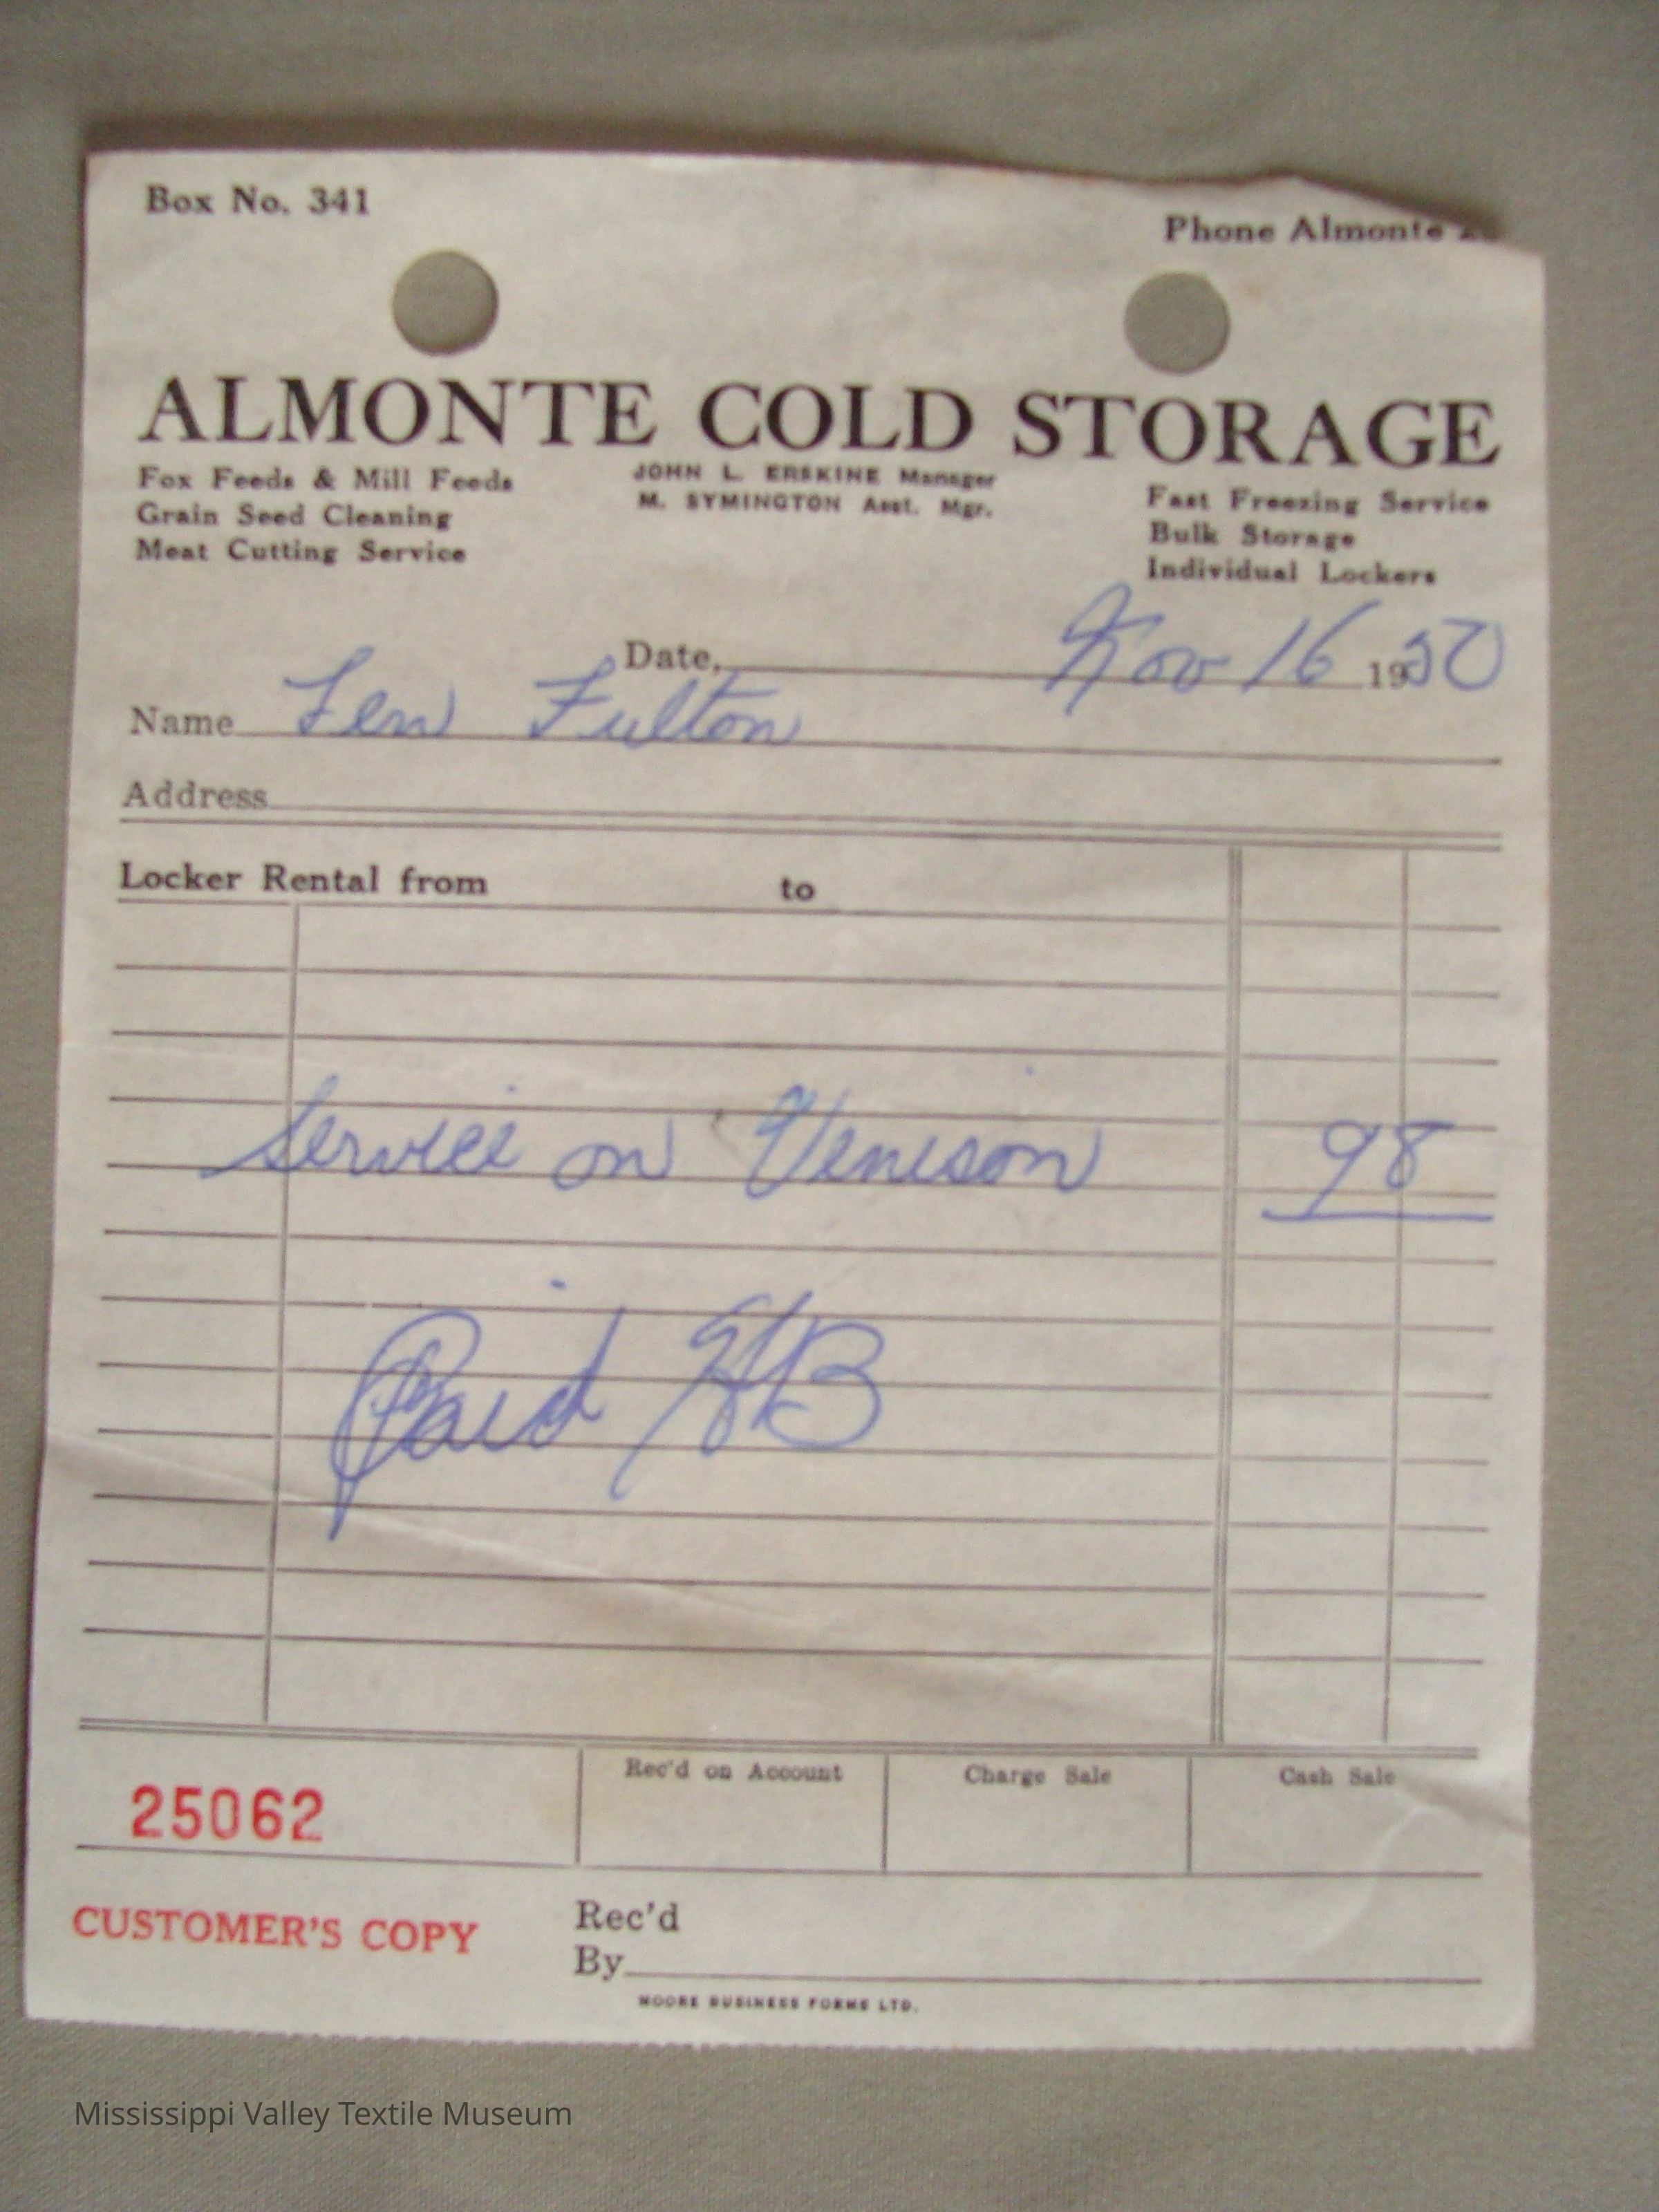 Box No. 341
Phone Almonte
ALMONTE COLD STORAGE
Fox Feeds & Mill Feeds
Grain Seed Cleaning
Meat Cutting Service
JOHN L. ERSKINE Manager
M. SYMINGTON Asst. Mgr.
Fast Freezing Service
Bulk Storage
Individual Lockers
Date, Nov 16 1950
Name Len Fulton
Address
Locker Rental from to
Service on Venison 98
Paid
Rec'd on Account Charge Sale Cash Sale
25062
CUSTOMER'S COPY
Rec'd
By
MOORE BUSINESS FORMS LTD.
Mississippi Valley Textile Museum